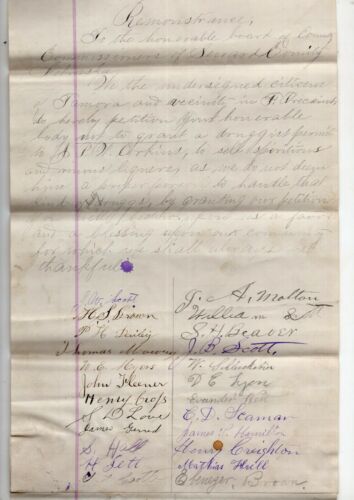 Remonstrance,
To the honorable board of County
Commissioners of Seward County
Nebraska
We the undersigned citizens
of Tamora and vecinity in F Precinct
do hereby petition your honorable
body not to grant a druggist permit
to A. P. W. to sell spiritious
and vinous liquors, as we do not deem
him a proper person to handle that
kind of drugs, by granting our petition
you will confer upon us a favor
and a blessing upon our community
for which we shall always be
thankful.
Scott
H. S. Brown
P. H.
Thomas
W. C. Myers
John Fleener
Henry Gofs
S. D. Love
James
S. Hill
H Jett
Scott
J. A. Motton
William
S. H. Beaver
J. B. Scott
W.
D E Lyon
E. D. Seaman
James Hamilton
Henry Creighton
Mathias Hill
Ebenezer Brown